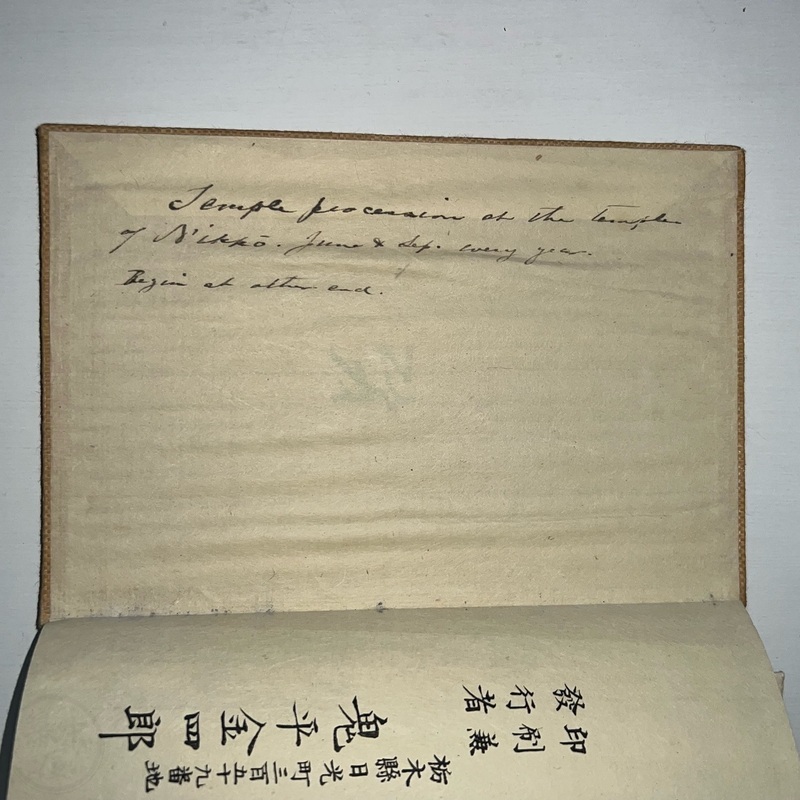 Temple procession at the temples
of Nikkō. June & Sep. every year.
Begin at other end.
印刷兼
發行者
栃木縣日光町三百五十九番地
鬼平金四郎